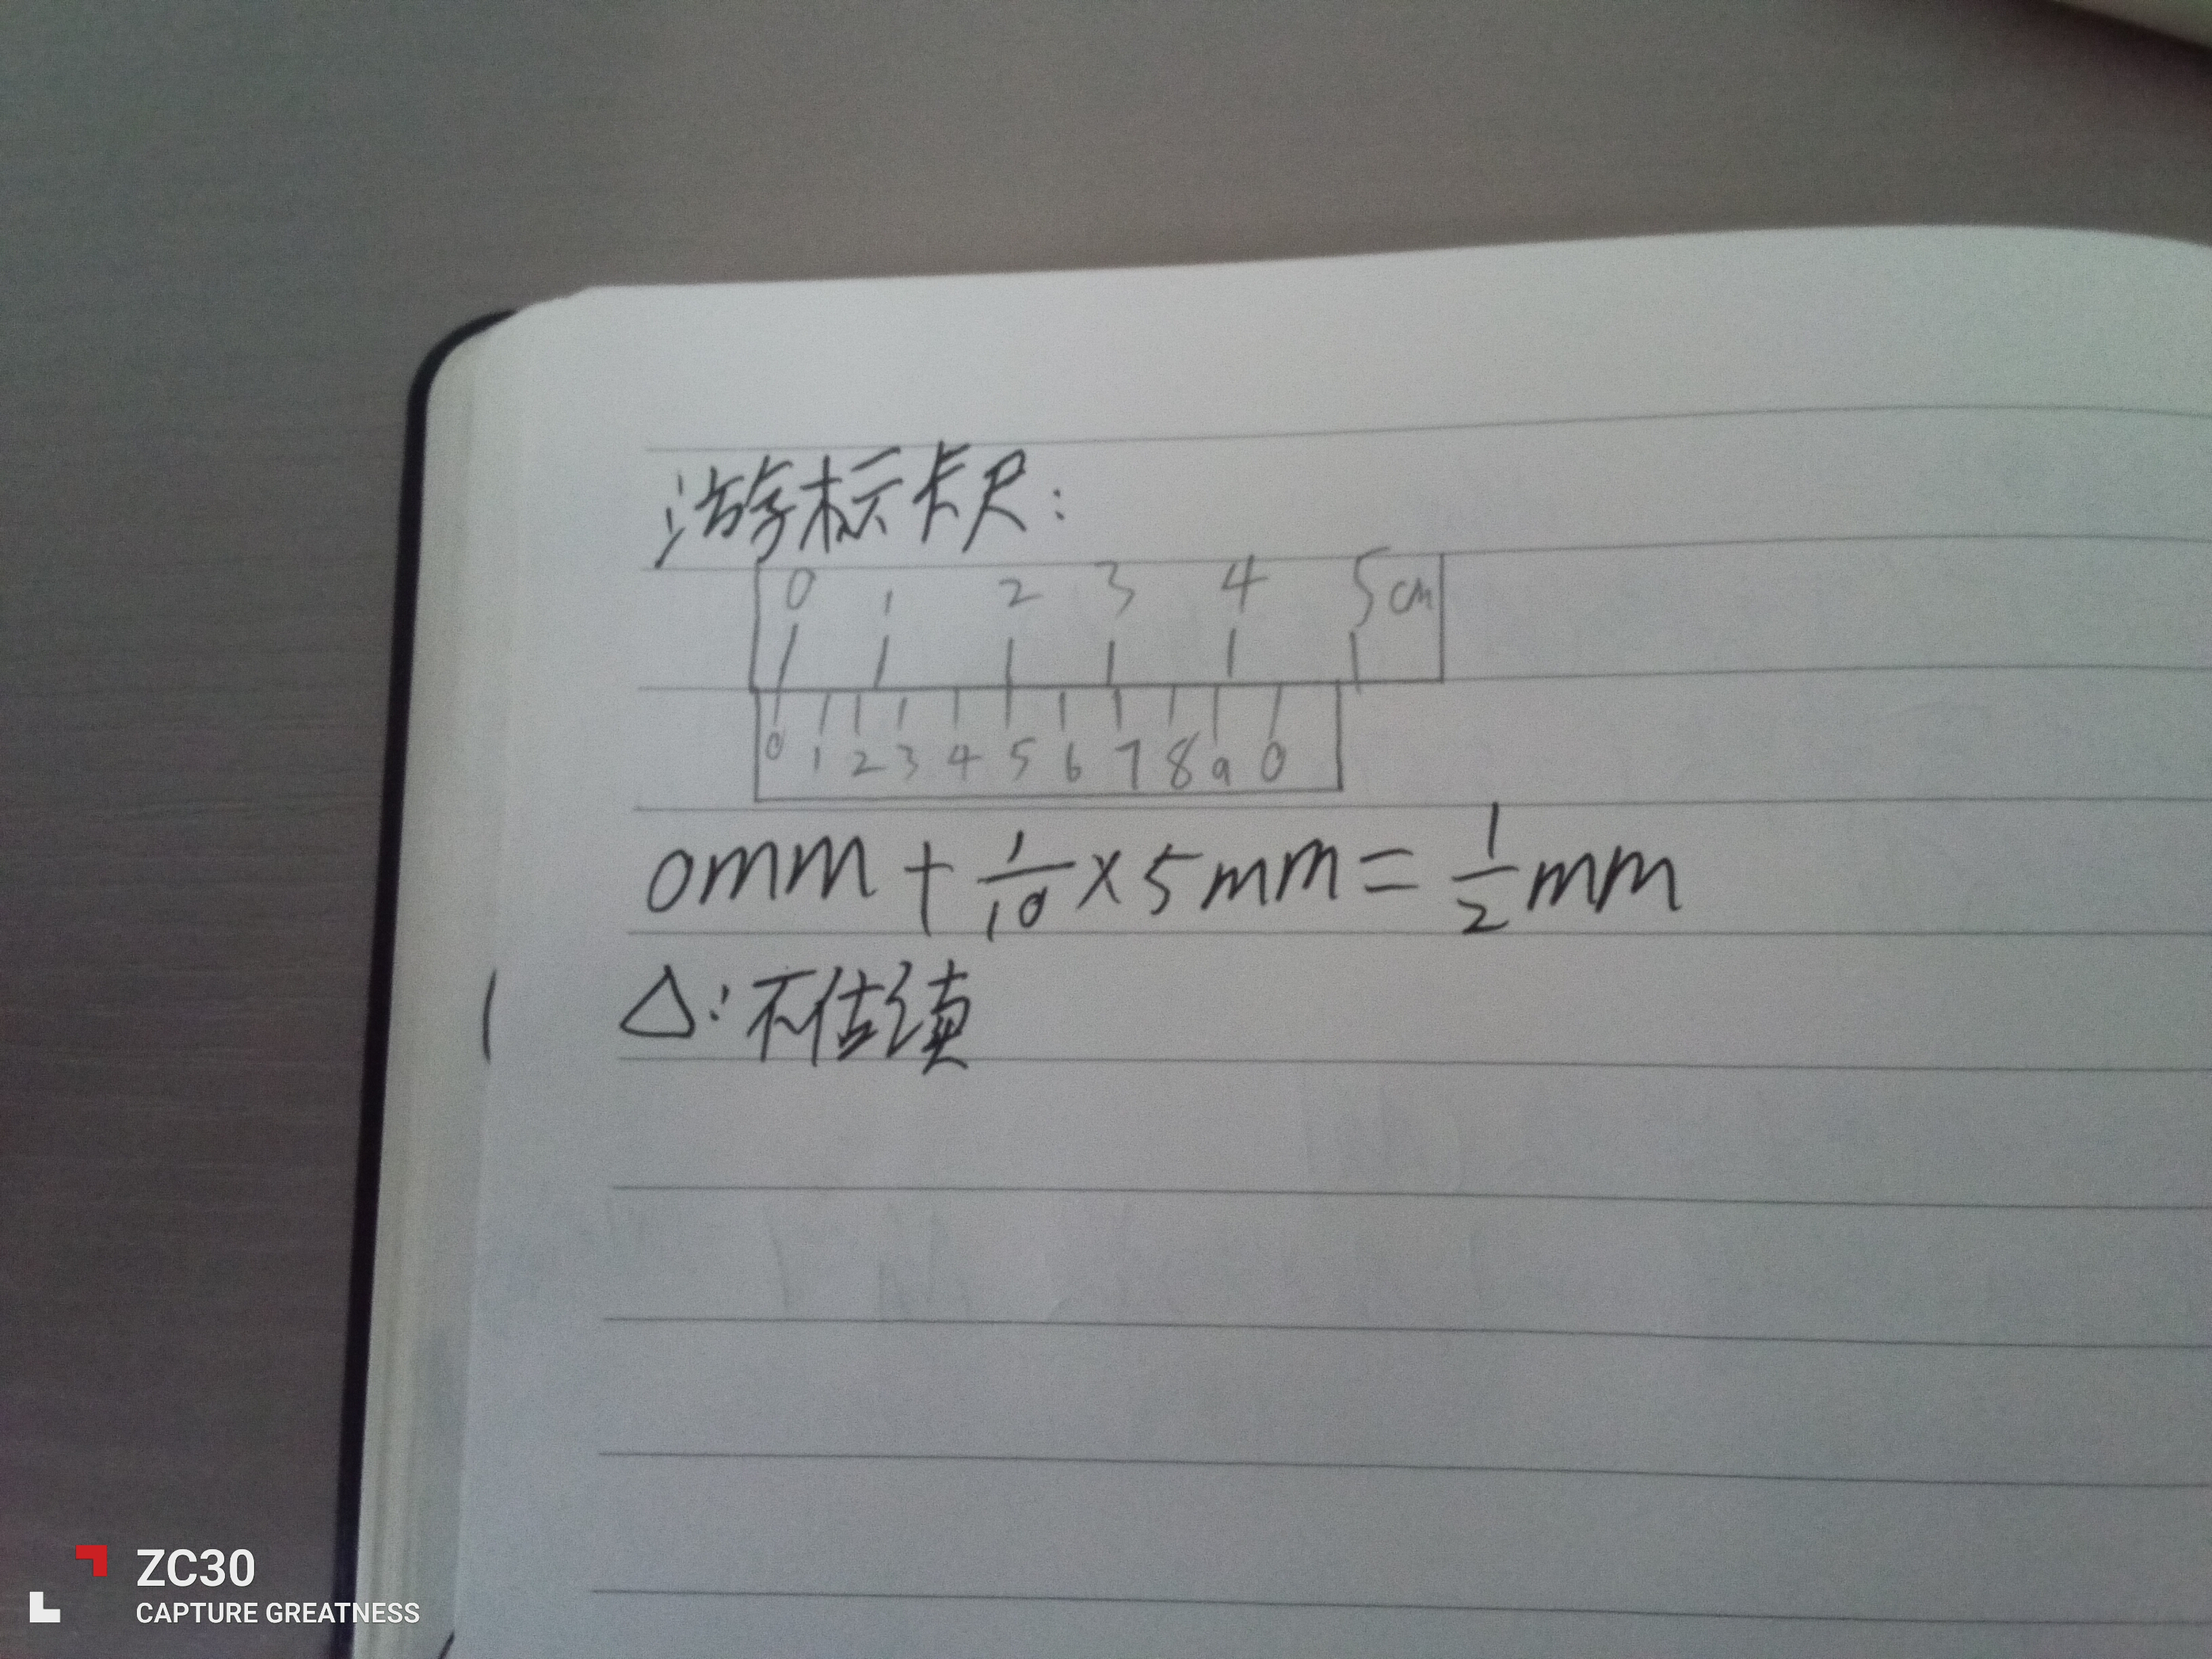 游标卡尺:
0 1 2 3 4 5cm
0 1 2 3 4 5 6 7 8 9 0
0mm + 1/10 × 5mm = 1/2 mm
△: 不估读
ZC30
CAPTURE GREATNESS